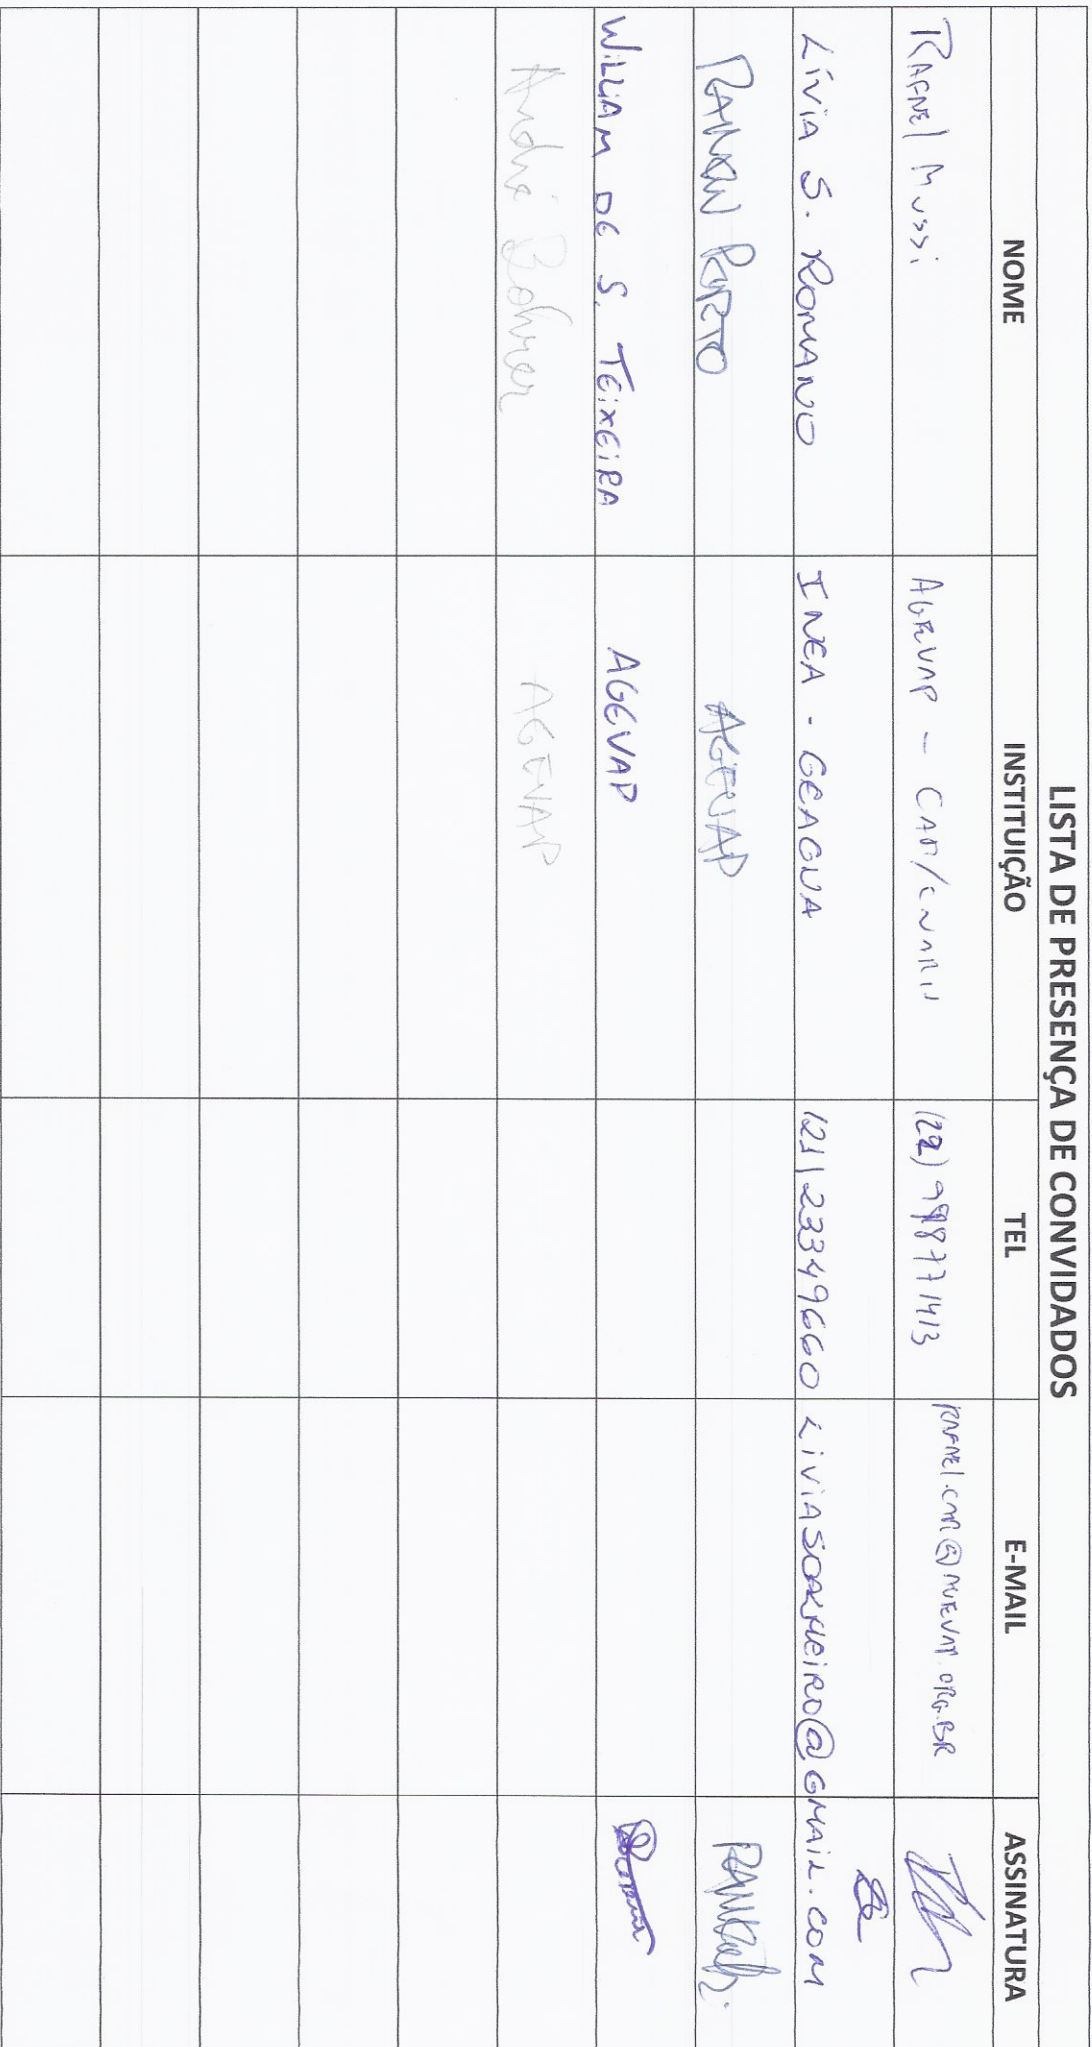 LISTA DE PRESENÇA DE CONVIDADOS
NOME INSTITUIÇÃO TEL E-MAIL ASSINATURA
RAFAEL Mussi AGEVAP - (22) 998771413
LÍVIA S. ROMANO INEA - GEAGUA (21) 23349660 LIVIASOALHEIRO@GMAIL.COM
PORTO AGEVAP
WILLIAM DE S. TEIXEIRA AGEVAP
André Bohrer AGEVAP